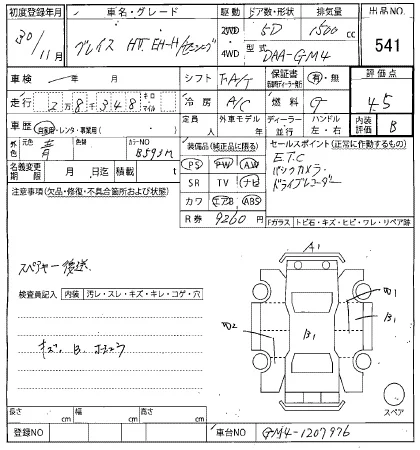 初度登録年月 車名・グレード 駆動 ドア数・形状 排気量 出品NO.
30/11月 グレイス HV EX-H/センシング 2WD 4WD 5D 1500 cc 541
型式 DAA-GM4
車検 年 月 シフト FAT 保証書 有・無 評価点
走行 2万8348 キロ マイル 冷房 A/C 燃料 G 4.5
車歴 自家用・レンタ・事業用( ) 定員 人 外車モデル 年 ディーラー 並行 ハンドル 左・右 内装評価 B
外装 元色 青 色替 カラーNO B593M 装備品(純正品に限る) セールスポイント(正常に作動するもの)
名義変更期限 月 日迄 積載 t PS PW AW ETC
SR TV ナビ バックカメラ
注意事項(欠品・修復・不具合箇所および状態) カワ エアB ABS ドライブレコーダー
R券 9260 Fガラス トビ石・キズ・ヒビ・ワレ・リペア跡
A1
スペアキー後送
検査員記入 内装 汚レ・スレ・キズ・キレ・コゲ・穴
U2 B1 U1 B1
キズ. B.
スペア
長さ cm 幅 cm 高さ cm
登録NO 車台NO GM4-1207976